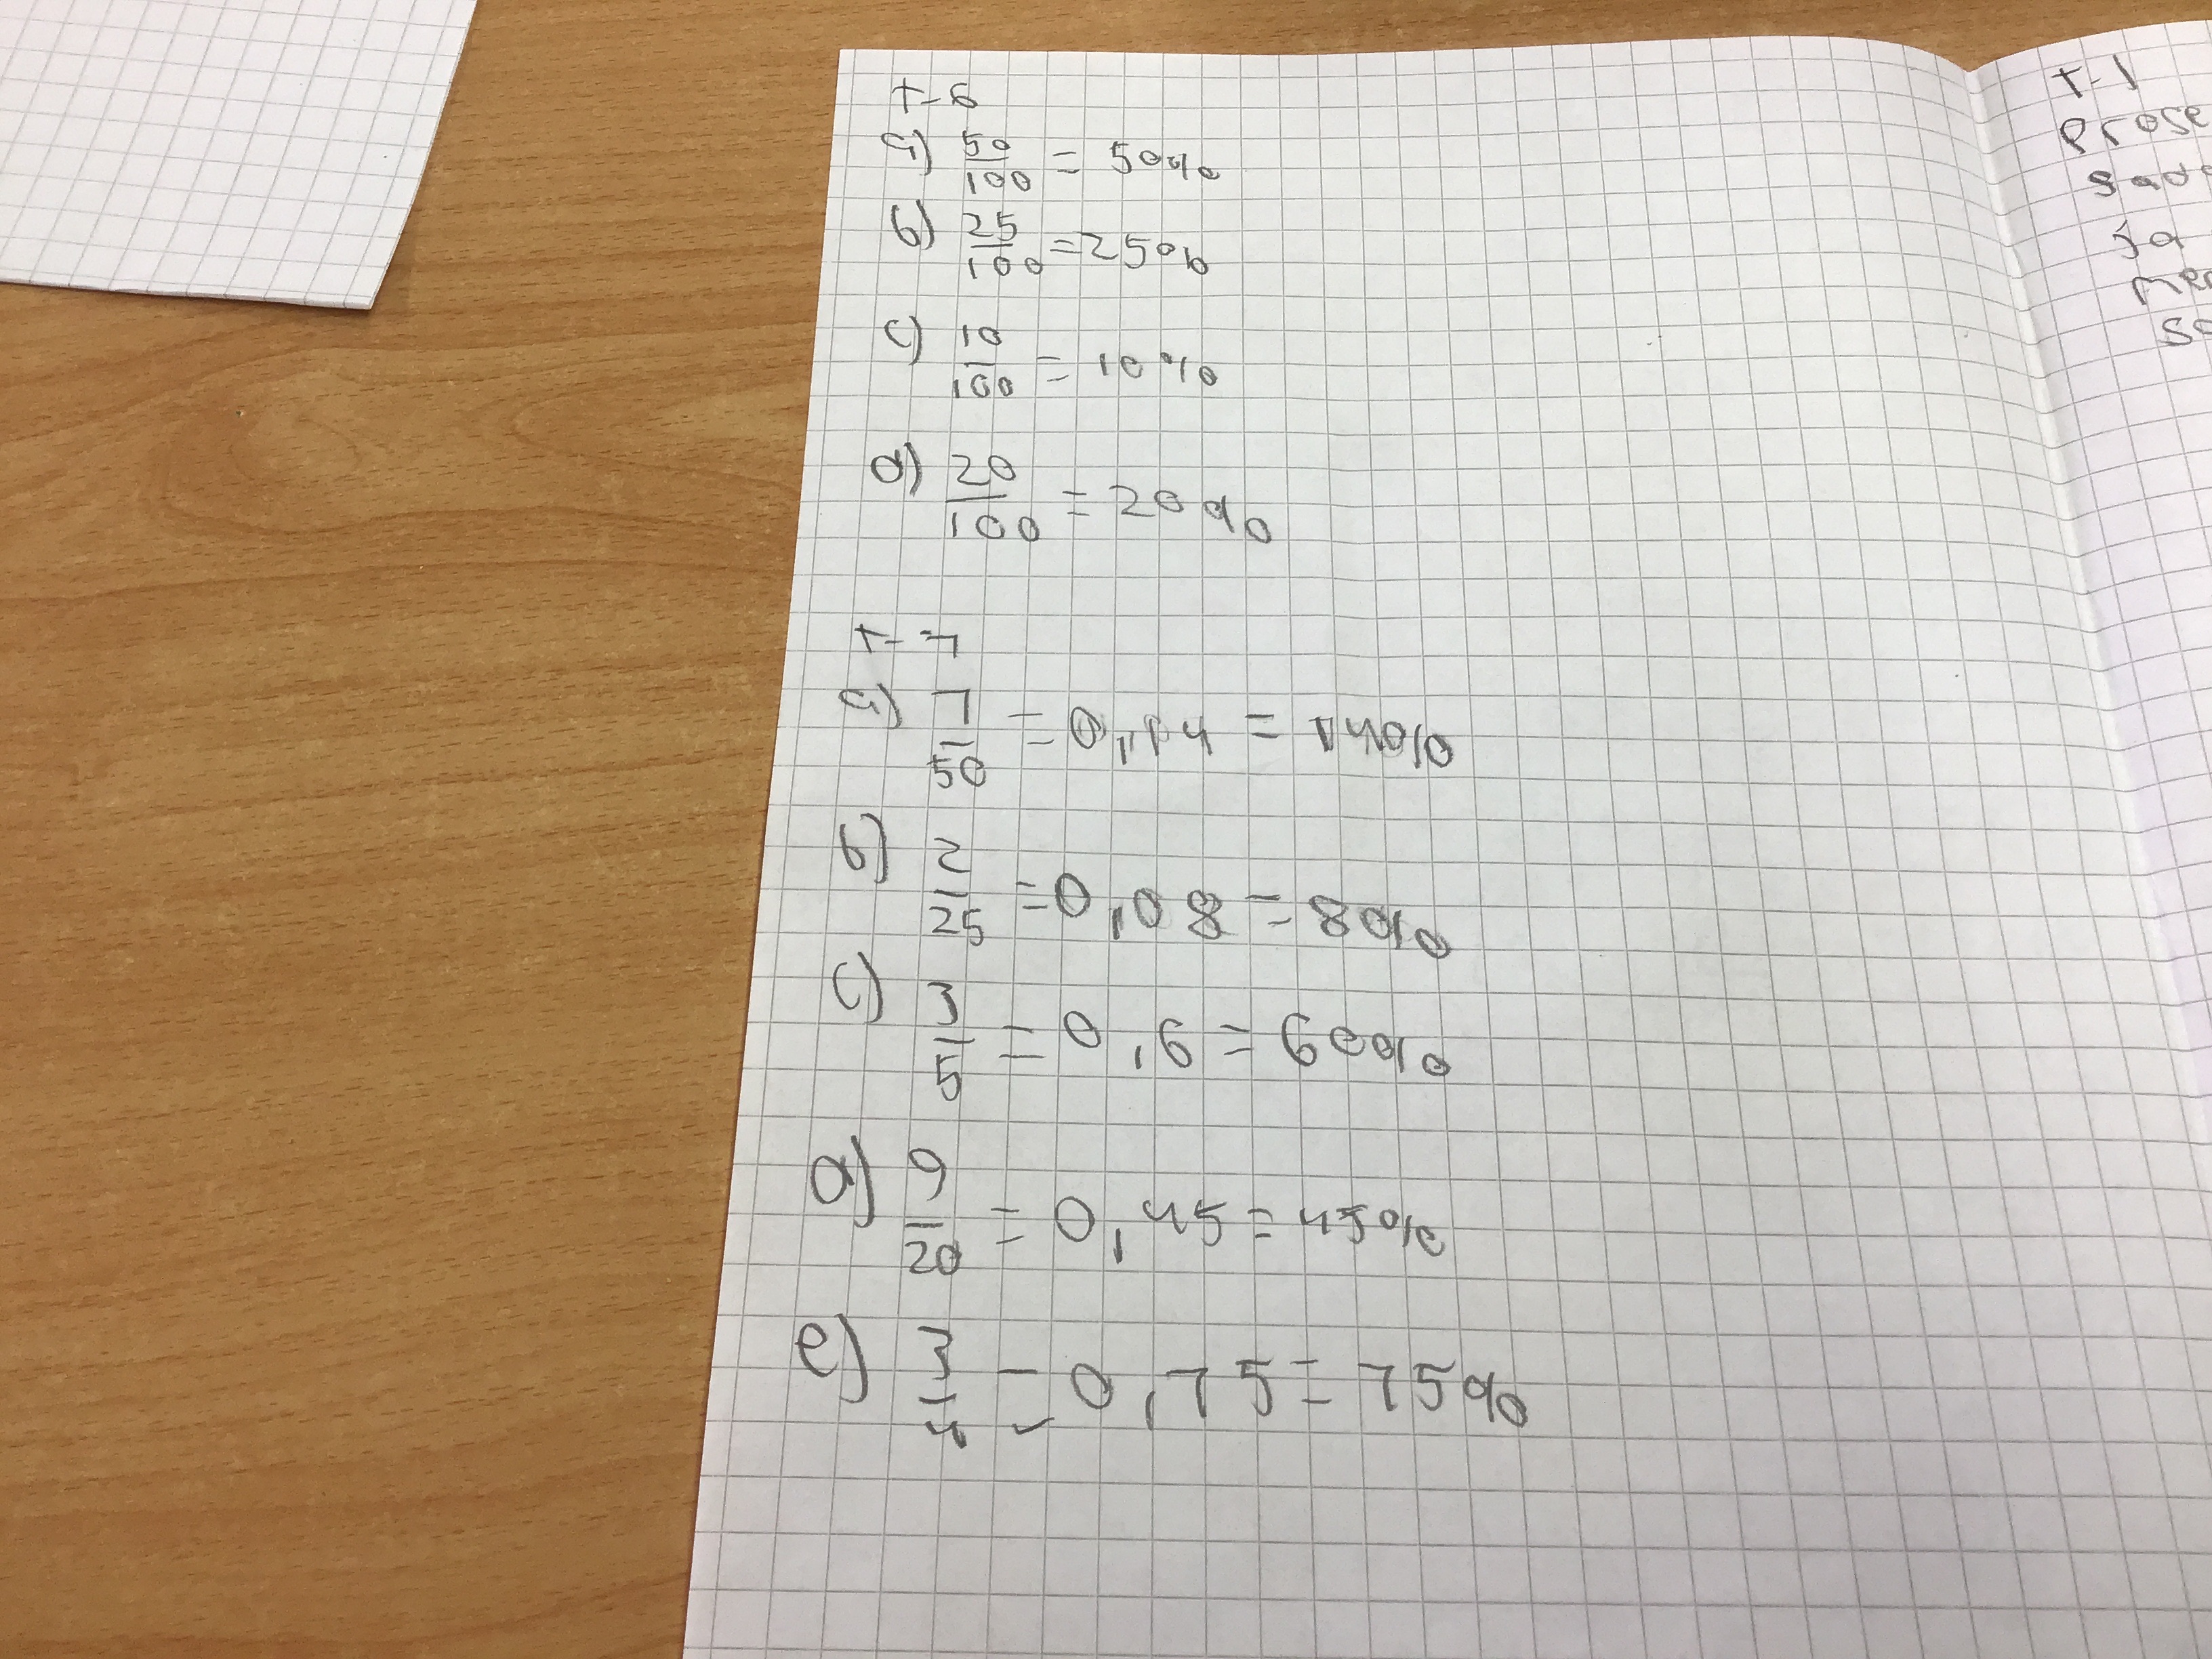 t-6
a) 50/100 = 50%
b) 25/100 = 25%
c) 10/100 = 10%
d) 20/100 = 20%
t-7
a) 7/50 = 0,14 = 14%
b) 2/25 = 0,08 = 8%
c) 3/5 = 0,6 = 60%
d) 9/20 = 0,45 = 45%
e) 3/4 = 0,75 = 75%
t-1
Prose
sada
ja